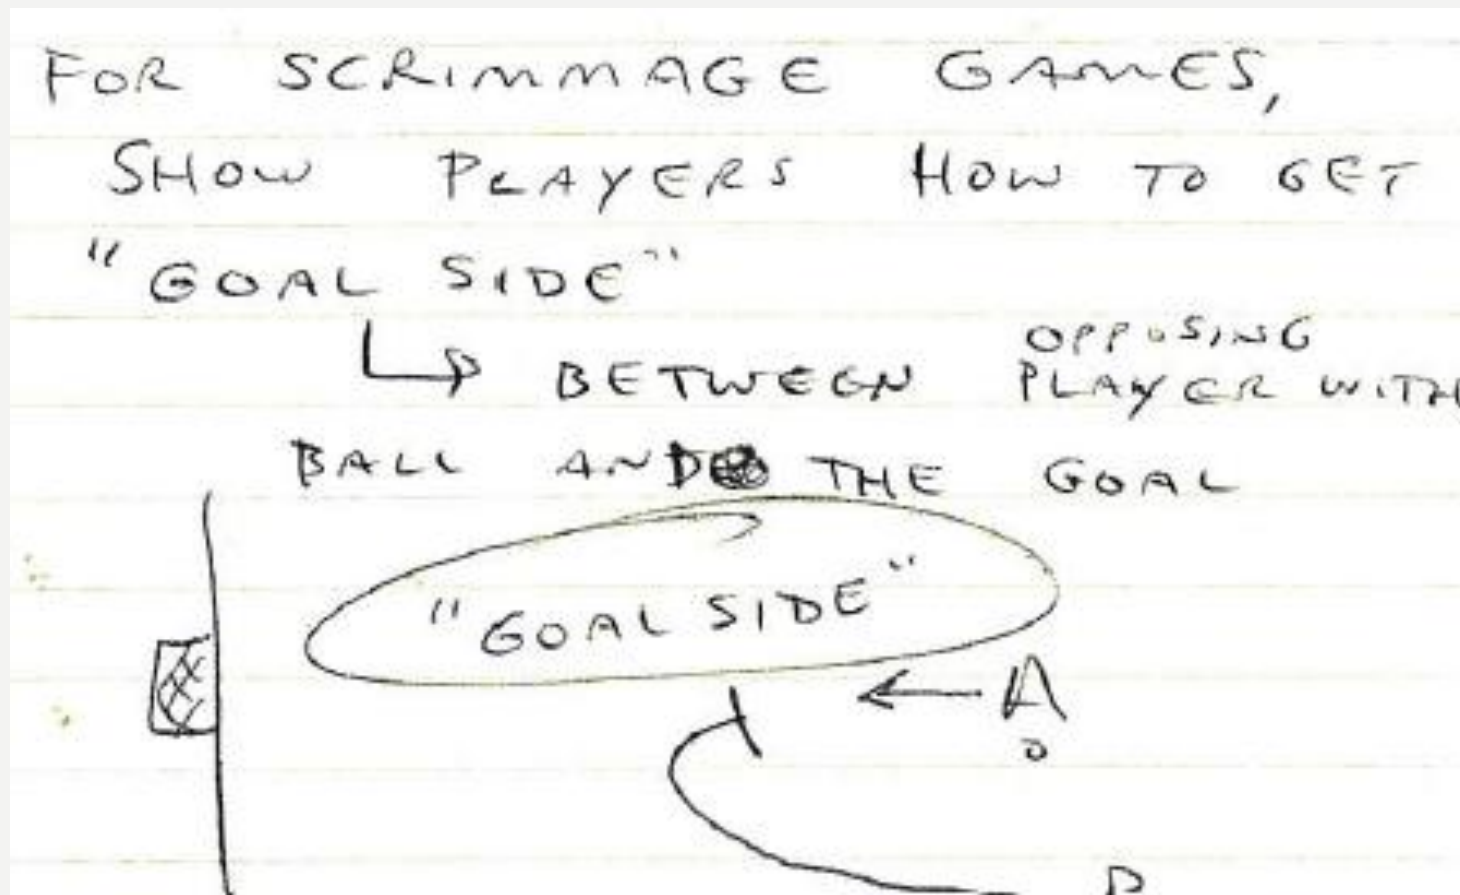 FOR SCRIMMAGE GAMES,
SHOW PLAYERS HOW TO GET
"GOAL SIDE"
OPPOSING
BETWEEN PLAYER WITH
BALL AND THE GOAL
"GOAL SIDE"
A